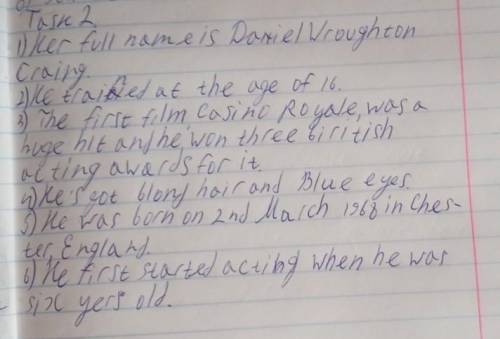 Task 2
1) Her full name is Daniel Wroughton
Craing.
2) He trained at the age of 16.
3) The first film, Casino Royale, was a
huge hit and he won three biritish
acting awards for it.
4) He's got blond hair and Blue eyes.
5) He was born on 2nd March 1968 in Ches-
ter, England.
6) He first started acting when he was
six yers old.